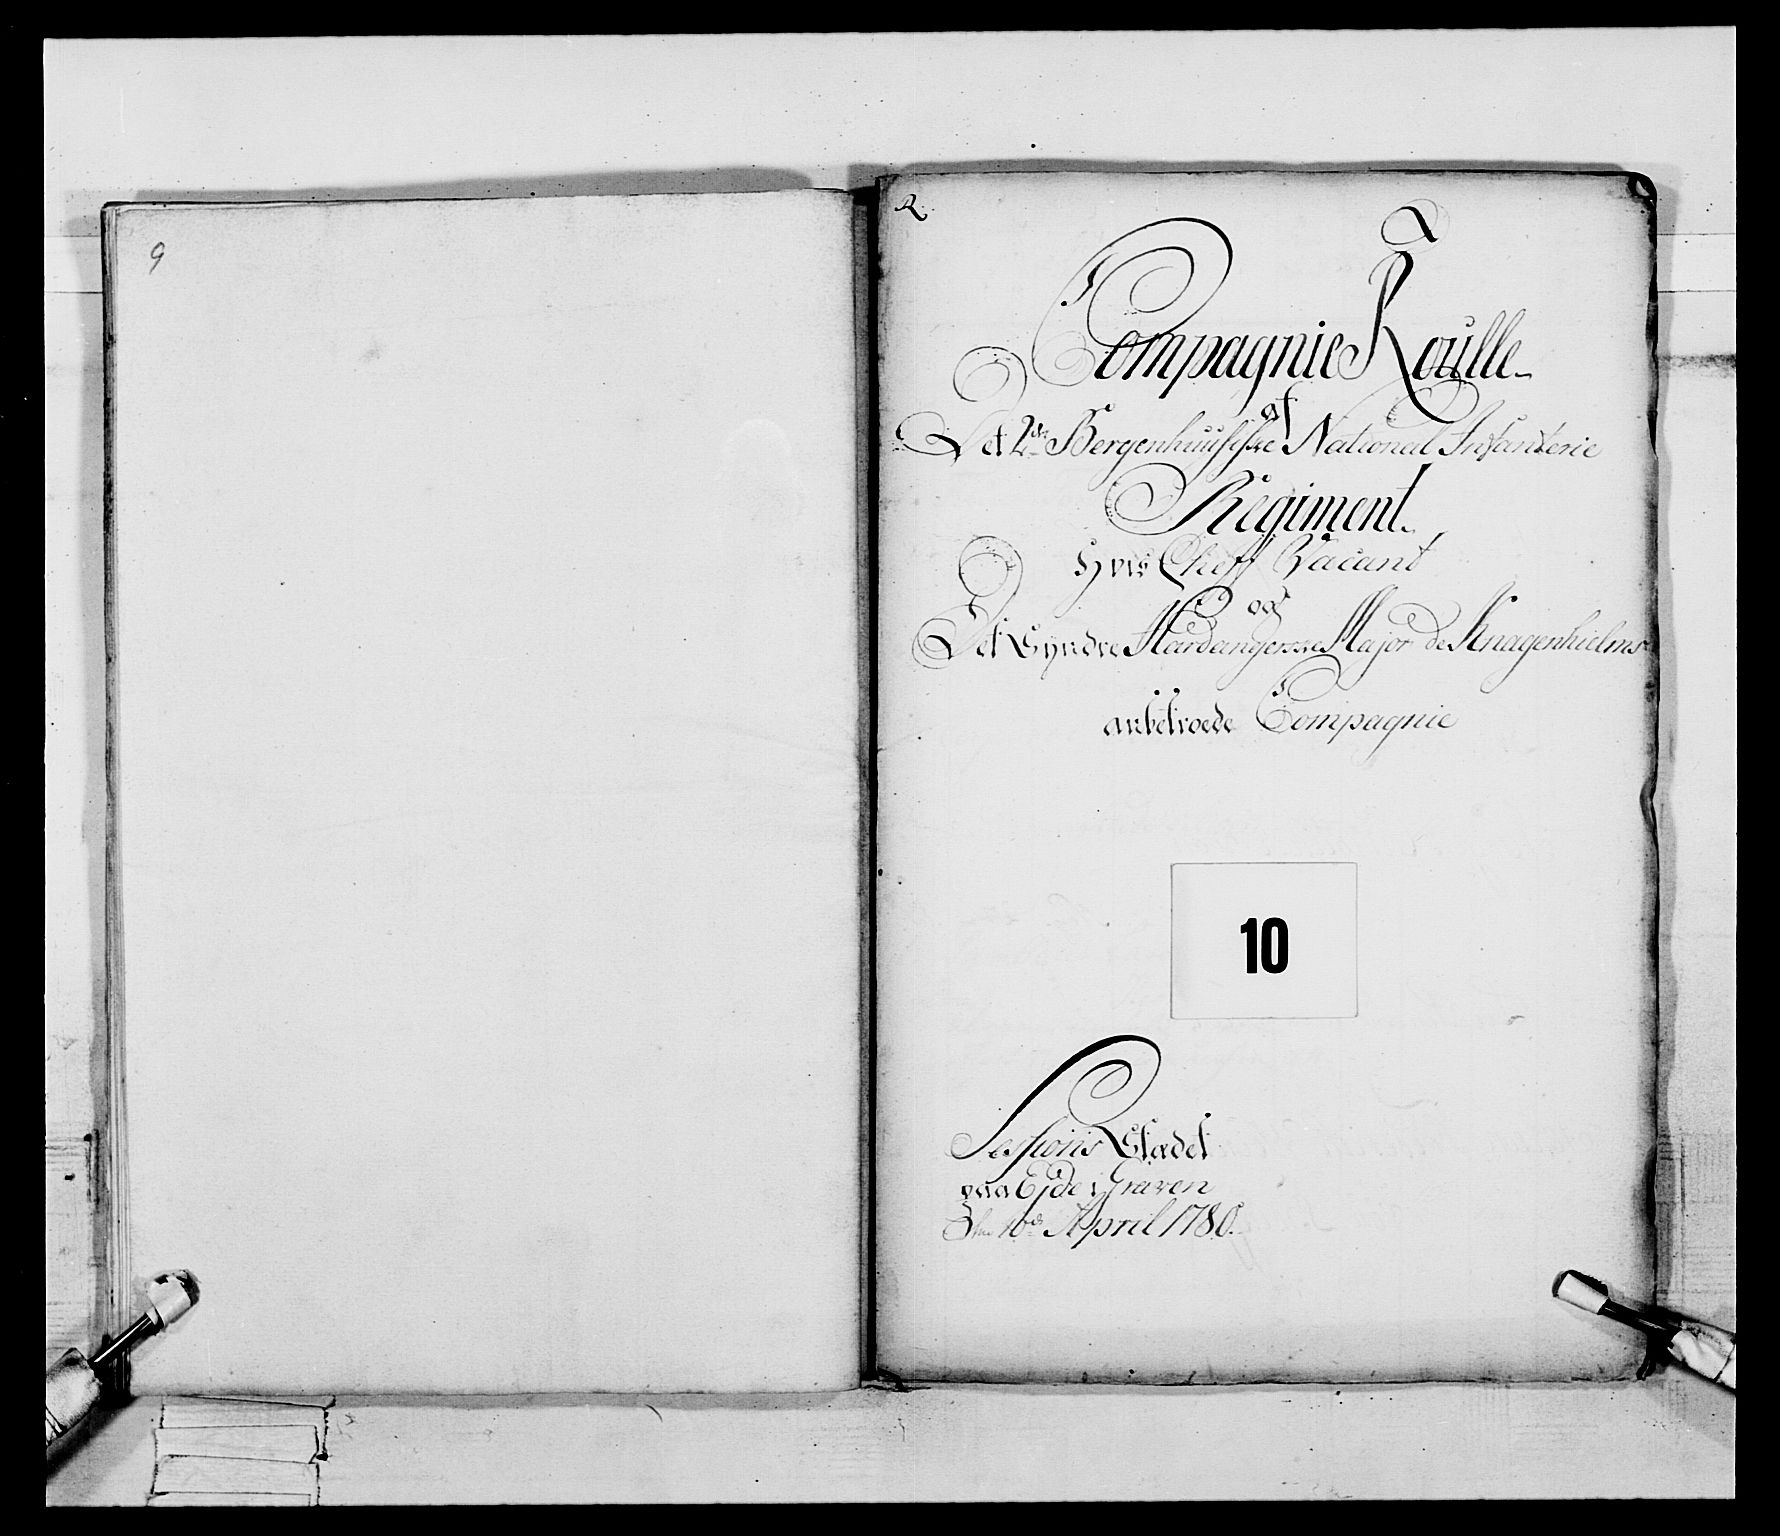 9
R
Compagnie Roulle
af
Det 2de Bergenhuusiske National Infanterie
Regiment.
Hvis Cheff Vacant
og
Det Syndre Hardangerske Major de Knagenhielms
anbetroede Compagnie
10
Sessions Stædet
paa Ejde i Graven
den 10de April 1780.